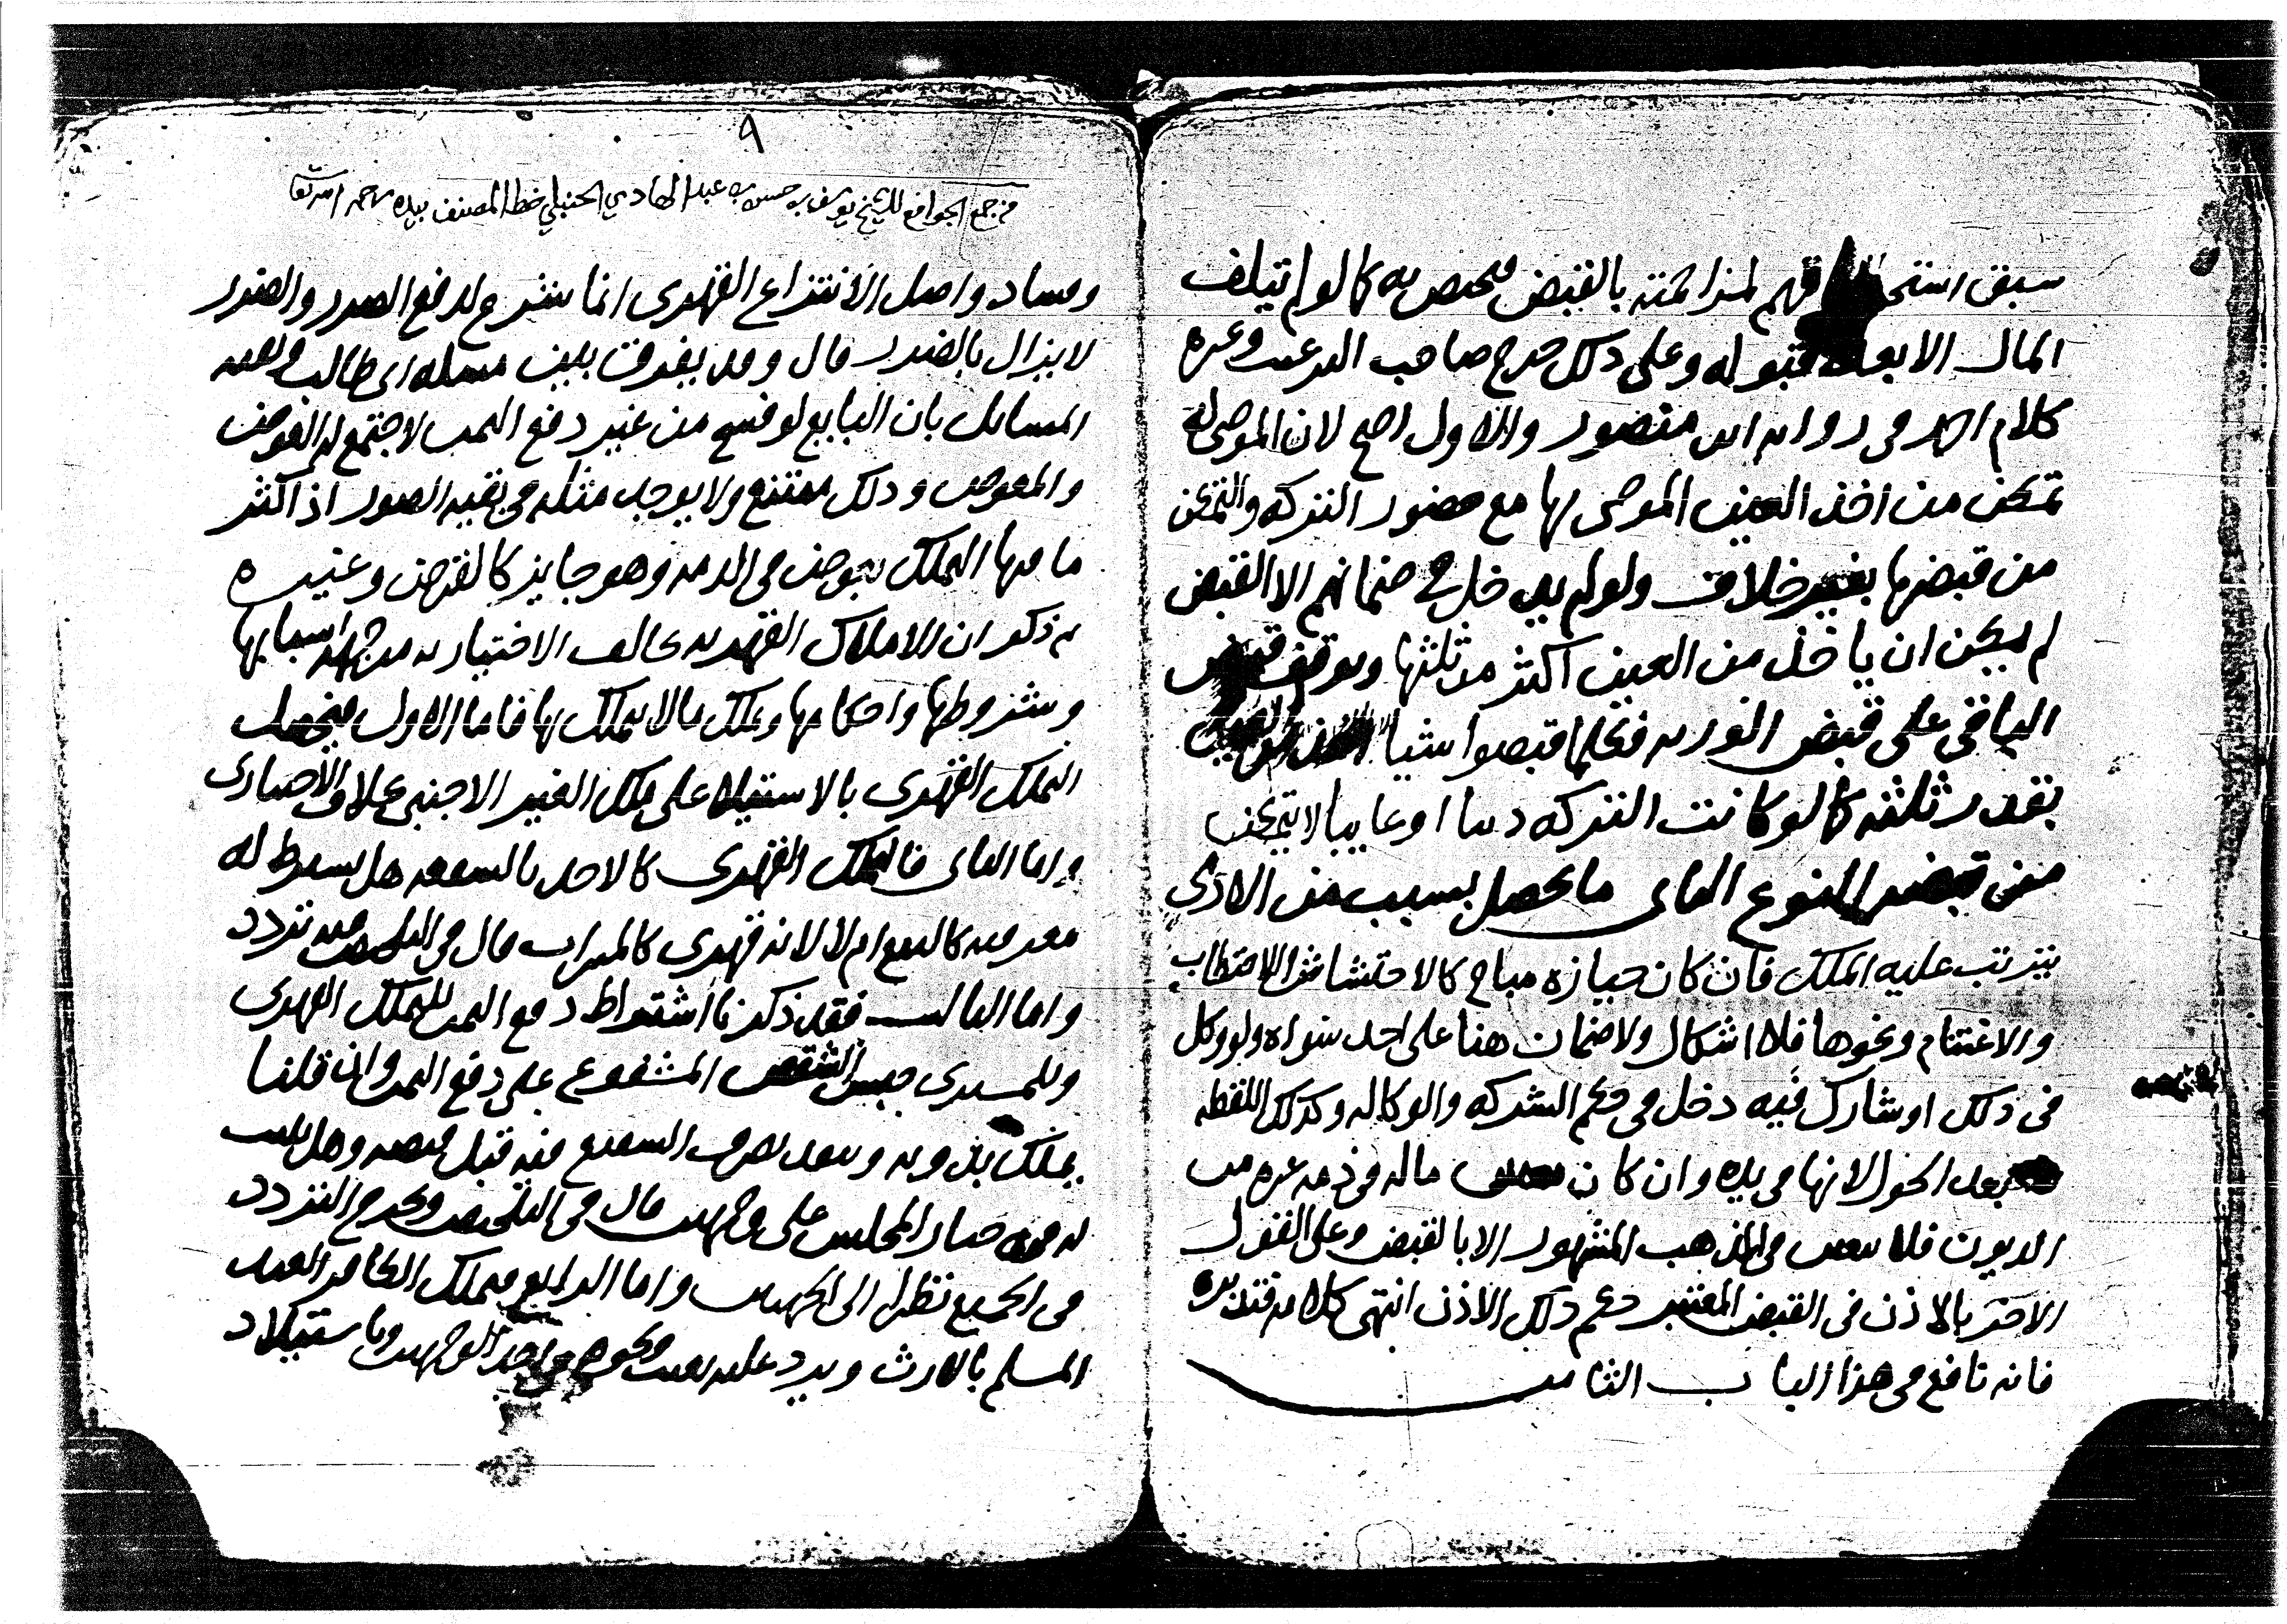 سبق استحقاقهم لمزاحمته بالقبض فيختص به كما لو لم يتلف
المال الا بعد قبوله وعلى ذلك خرج صاحب الترغيب وغيره
كلام احمد في رواية ابن منصور والاول اصح لان الموصى له
تمكن من اخذ العين الموصى بها مع حضور التركه والتمكن
من قبضها بغير خلاف ولو لم يدخل في ضمانهم الا القبض
لم يمكن ان ياخذ من العين اكثر من ثلثها وتوقف قبض
الباقي على قبض الورثه فكلما قبضوا شيا اخذ من العين
بقدر ثلثه كما لو كانت التركه دينا او غايبا لا يتمكن
من قبضه النوع الثاني ما يحصل بسبب من الادمي
يترتب عليه الملك فان كان حيازه مباح كالاحتشاش والاحتطاب
والاغتنام ونحوها فلا اشكال ولا ضمان هنا على احد سواه ولو وكل
في ذلك او شارك فيه دخل في حكم الشركه والوكاله وكذلك اللقطه
بعد الحول لانها في يده وان كان ماله في ذمه غيره من
الديون فلا يتعين في المذهب المشهور الا بالقبض وعلى القول
الاخر بالاذن في القبض المعتبر حكم ذلك الاذن انتهى كلامه فتدبره
فانه نافع في هذا الباب الثامن
٩
من جمع الجوامع للشيخ يوسف بن حسن بن عبد الهادي الحنبلي خط المصنف بيده رحمه الله تعا
وفساد واصل الانتزاع القهري انما شرع لدفع الضرر والضرر
لا يزال بالضرر قال وقد يفرق بين مساله ابي طالب وبقيه
المسائل بان البايع لو فسخ من غير دفع الثمن لاجتمع له العوض
والمعوض وذلك ممتنع ولا يوجد مثله في بقيه الصور اذ اكثر
ما فيها التملك بعوض في الذمه وهو جايز كالقرض وغيره
ثم ذكر ان الاملاك القهريه تخالف الاختياريه من جهه اسبابها
وشروطها واحكامها وتملك مالا يملك بها فاما الاول فيحصل
التملك القهري بالاستيلاء على ملك الغير الاجنبي بخلاف الاختياري
واما الثاني فالتملك القهري كالاخذ بالشفعه هل يشترط له
معرفته كالبيع ام لا لانه قهري كالميراث قال في التلخيص فيه تردد
واما الثالث فقد ذكرنا اشتراط دفع الثمن للتملك القهري
وللمشتري حبس الشقص المشفوع على دفع الثمن وان قلنا
يملك بدونه وينفذ تصرف الشفيع فيه قبل قبضه وهل يثبت
له فيه خيار المجلس على وجهين قال في التلخيص ويخرج التردد
في الجميع نظرا الى الجهتين واما الرابع فيملك الكافر العبد
المسلم بالارث ويرد عليه بعيب ونحوه في احد الوجهين وباستيلاد